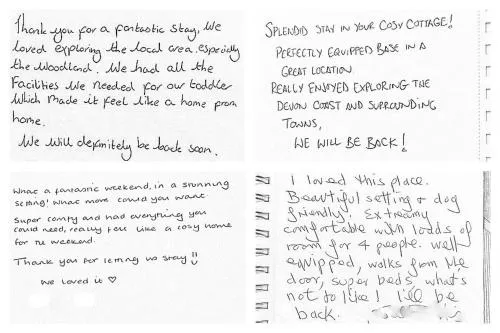 Thank you for a fantastic stay, We
loved exploring the local area, especially
the Woodland. We had all the
Facilities We Needed for our toddler
Which made it feel like a home from
home.
We will definitely be back soon.
SPLENDID STAY IN YOUR COSY COTTAGE!
PERFECTLY EQUIPPED BASE IN A
GREAT LOCATION
REALLY ENJOYED EXPLORING THE
DEVON COAST AND SURROUNDING
TOWNS,
WE WILL BE BACK!
What a fantastic weekend, in a stunning
setting! What more could you want
Super comfy and had everything you
could need, really felt like a cosy home
for the weekend.
Thank you for letting us stay!!
We loved it ♡
I loved this place.
Beautiful setting & dog
friendly! Extreamy
comfortable with loads of
room for 4 people. well
equipped, walks from the
door, super beds, what's
not to like! I'll be
back.